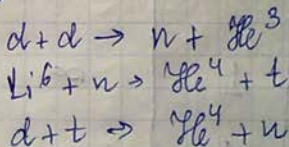 d + d → n + He³
Li⁶ + n → He⁴ + t
d + t → He⁴ + n